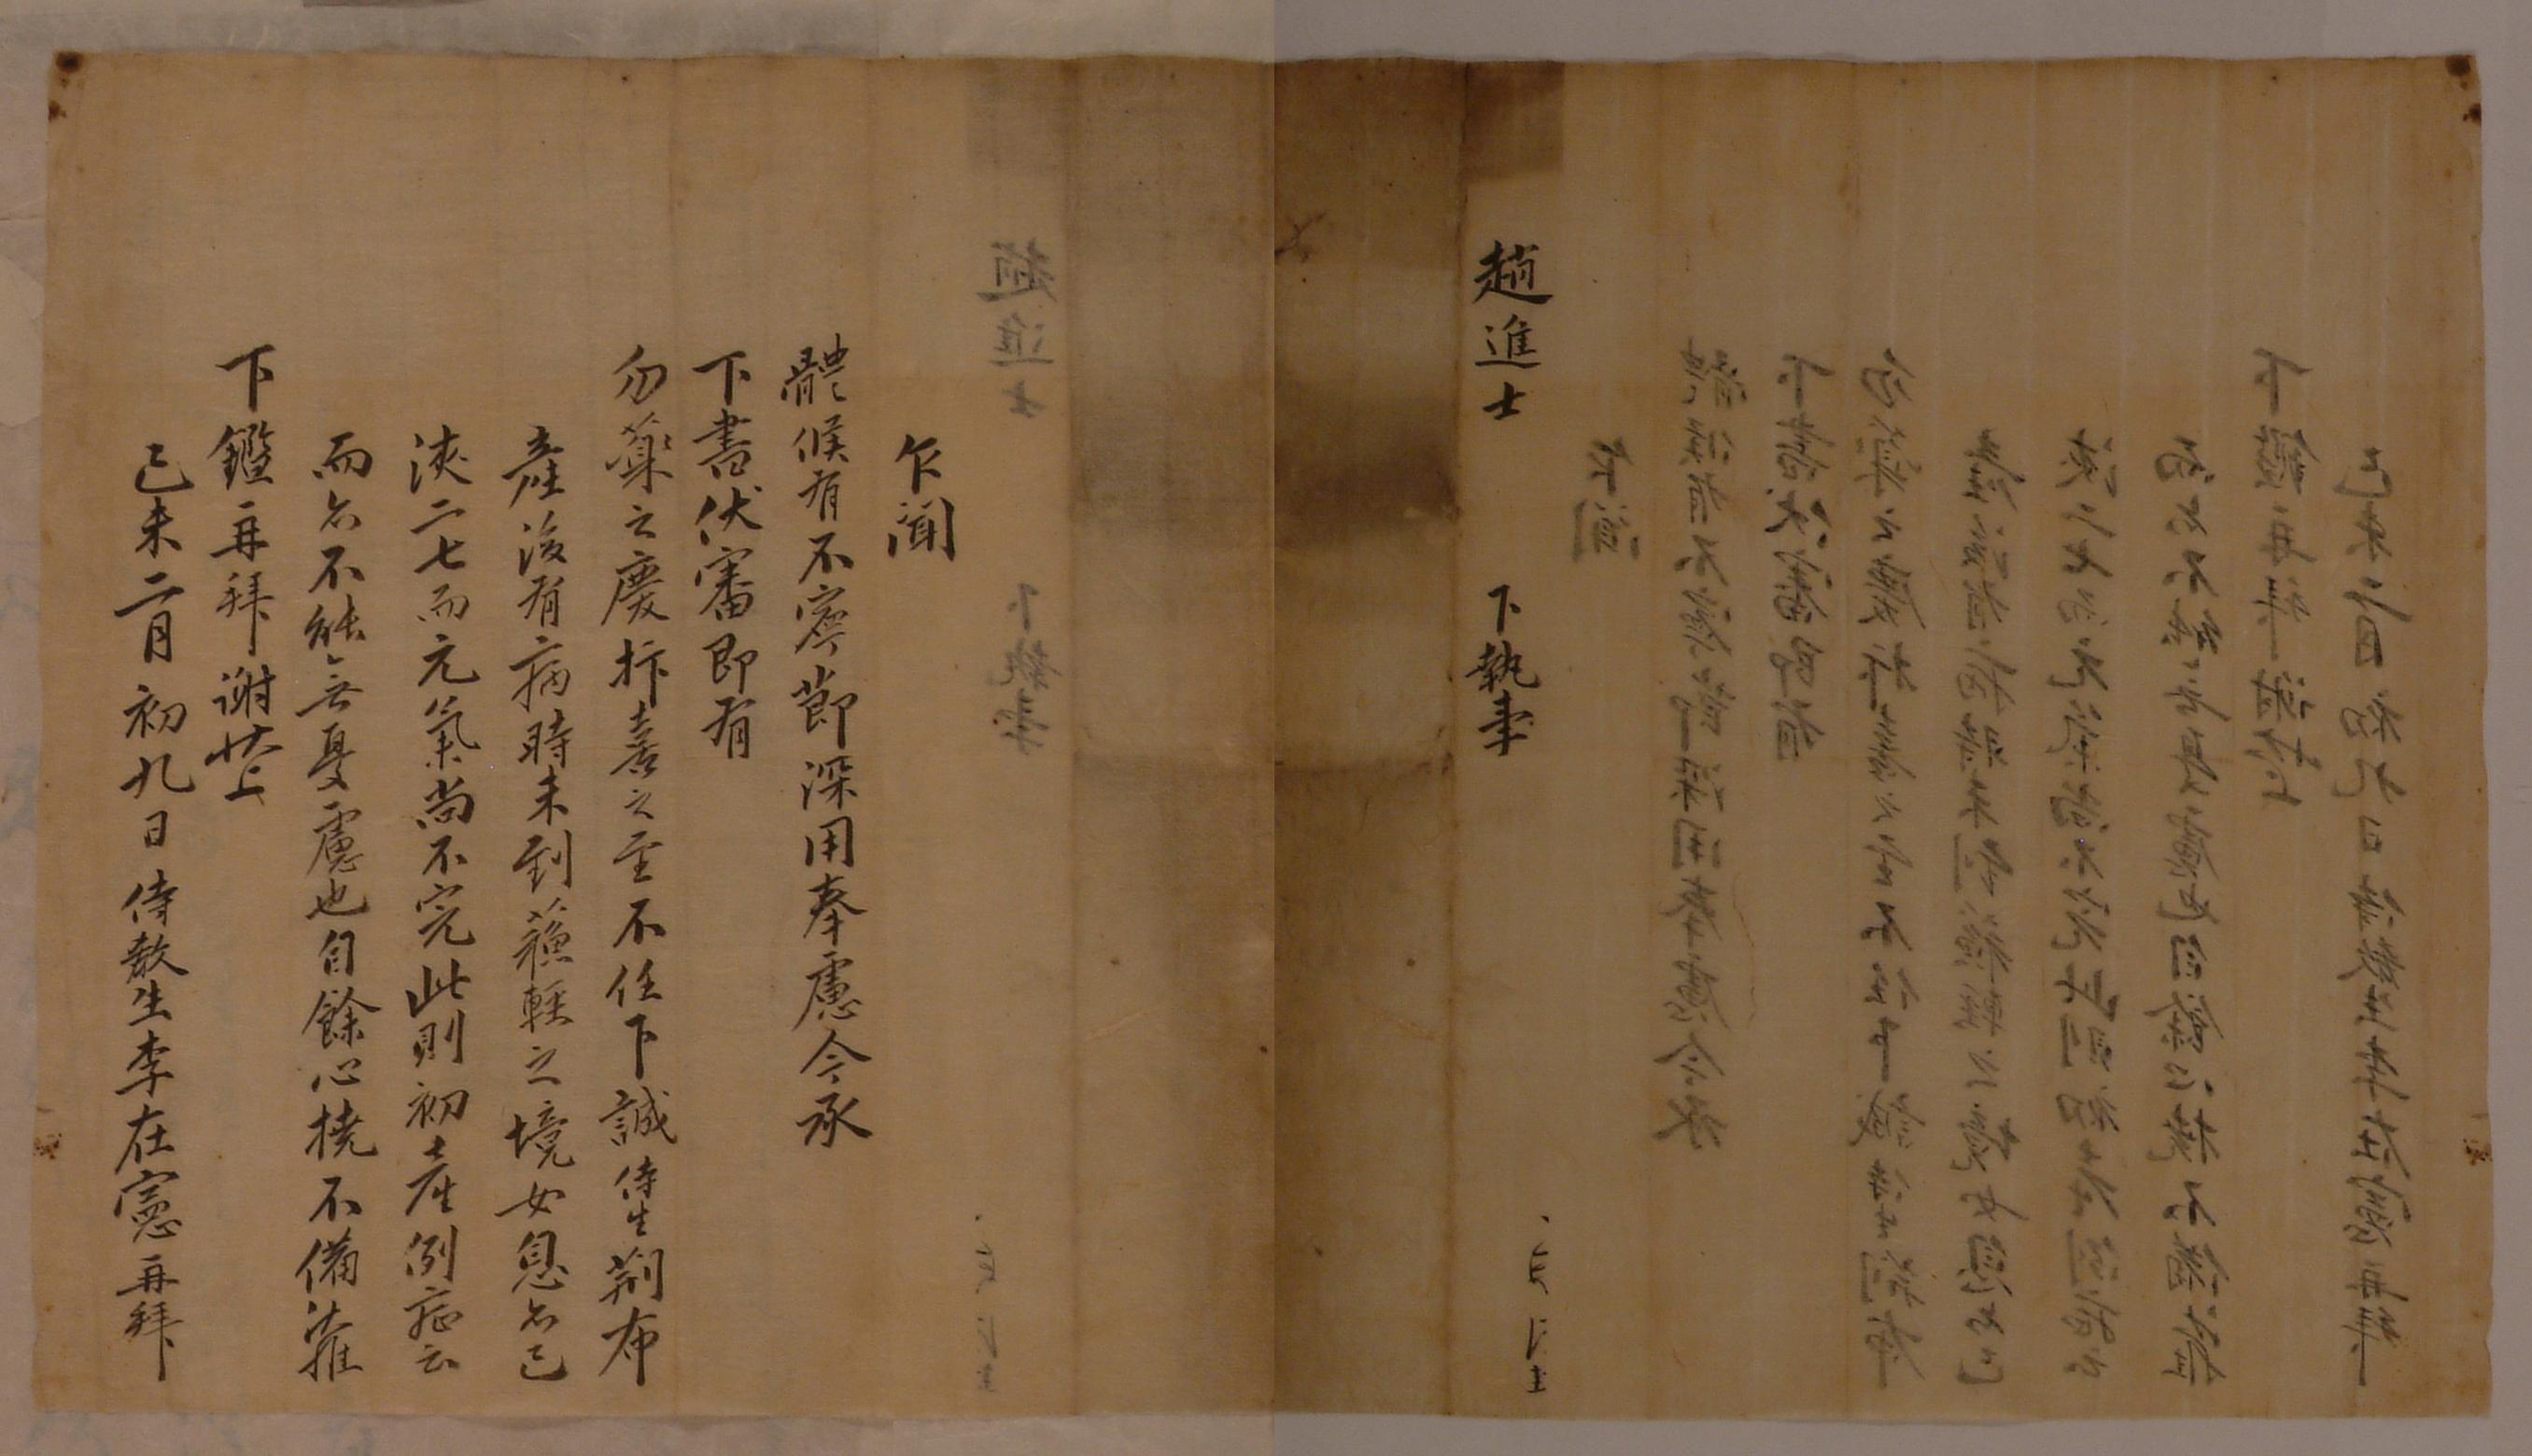 趙進士 下執事
乍聞
體候有不寧節深用奉慮今承
下書伏審卽有
勿藥之慶抃喜之至不任下誠侍生荊布
產後有病時未到蘇輕之境女息亦已
浹二七而元氣尚不完此則初產例症云
而亦不能無憂慮也自餘心撓不備
下鑑再拜謝上
己未二月初九日侍敎生李在憲再拜